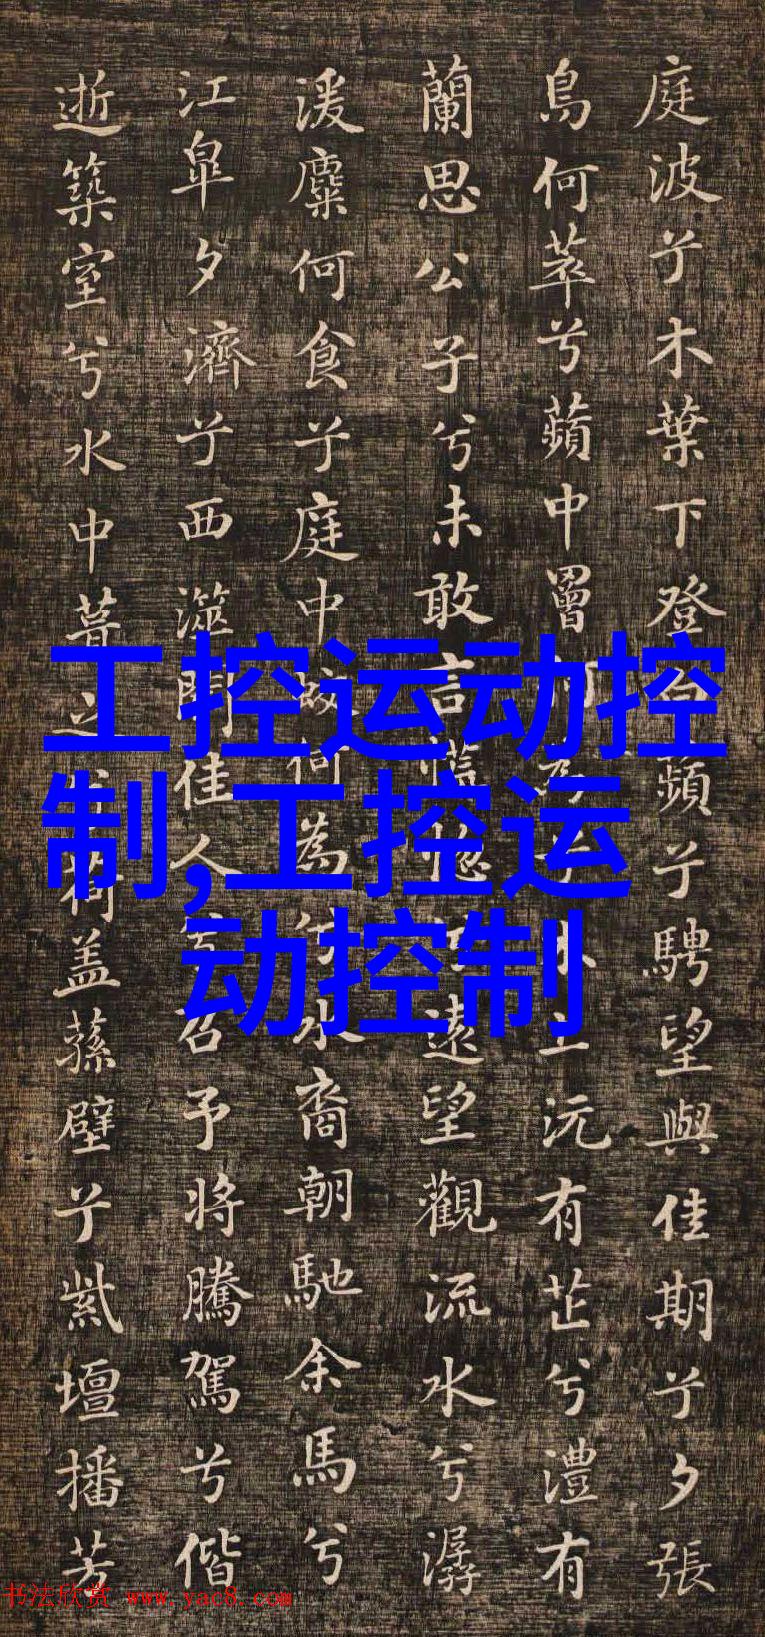 庭波兮木葉下登白蘋兮騁望與佳期兮夕張
鳥何萃兮蘋中罾何為兮木上沅有芷兮澧有
蘭思公子兮未敢言慌惚兮遠望觀流水兮潺
湲麋何食兮庭中蛟何為兮水裔朝馳余馬兮
江皋夕濟兮西澨聞佳人兮召予將騰駕兮偕
逝築室兮水中葺之兮荷盖蓀壁兮紫壇播芳
工控运动控
制,工控运
动控制
书法欣赏 www.yac8.com